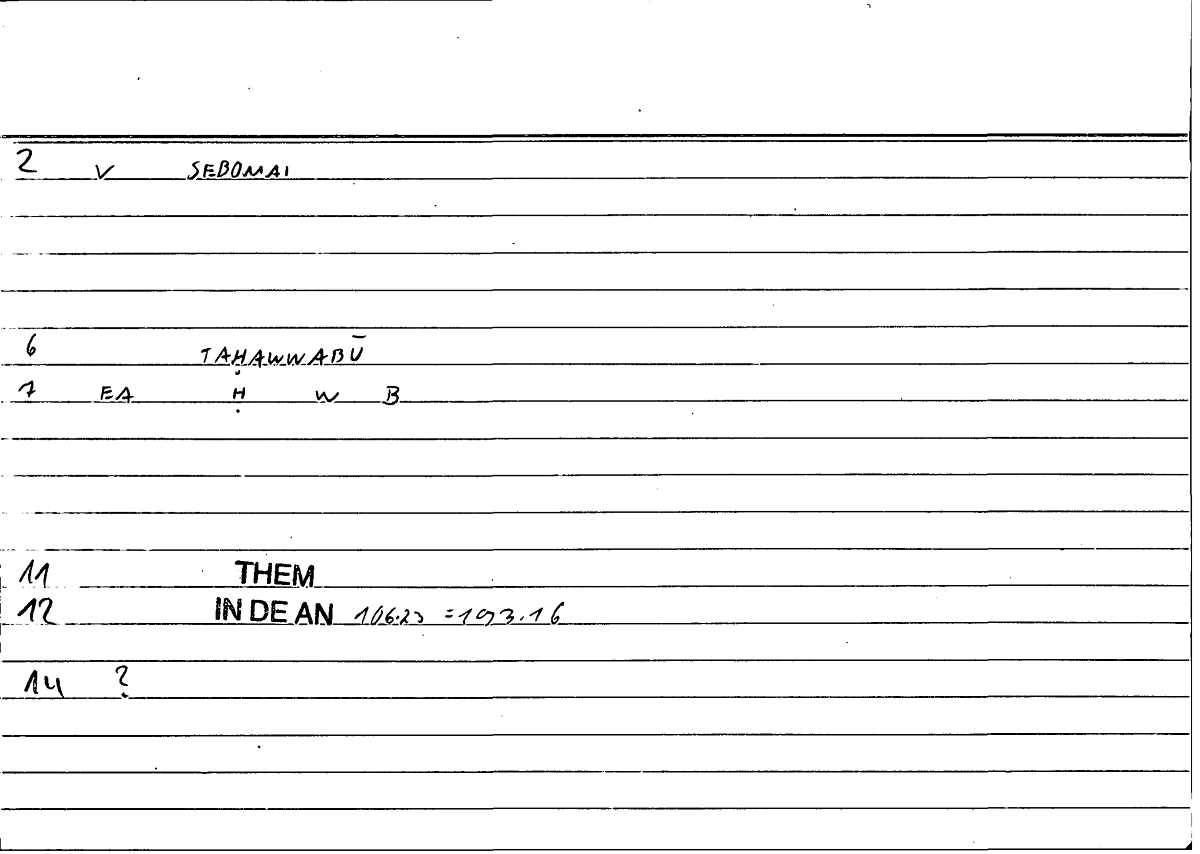 2 V SEBOMAI
6 TAḤAWWABŪ
7 EA Ḥ W B
11 THEM
12 IN DE AN 106.23 = 193.16
14 ?